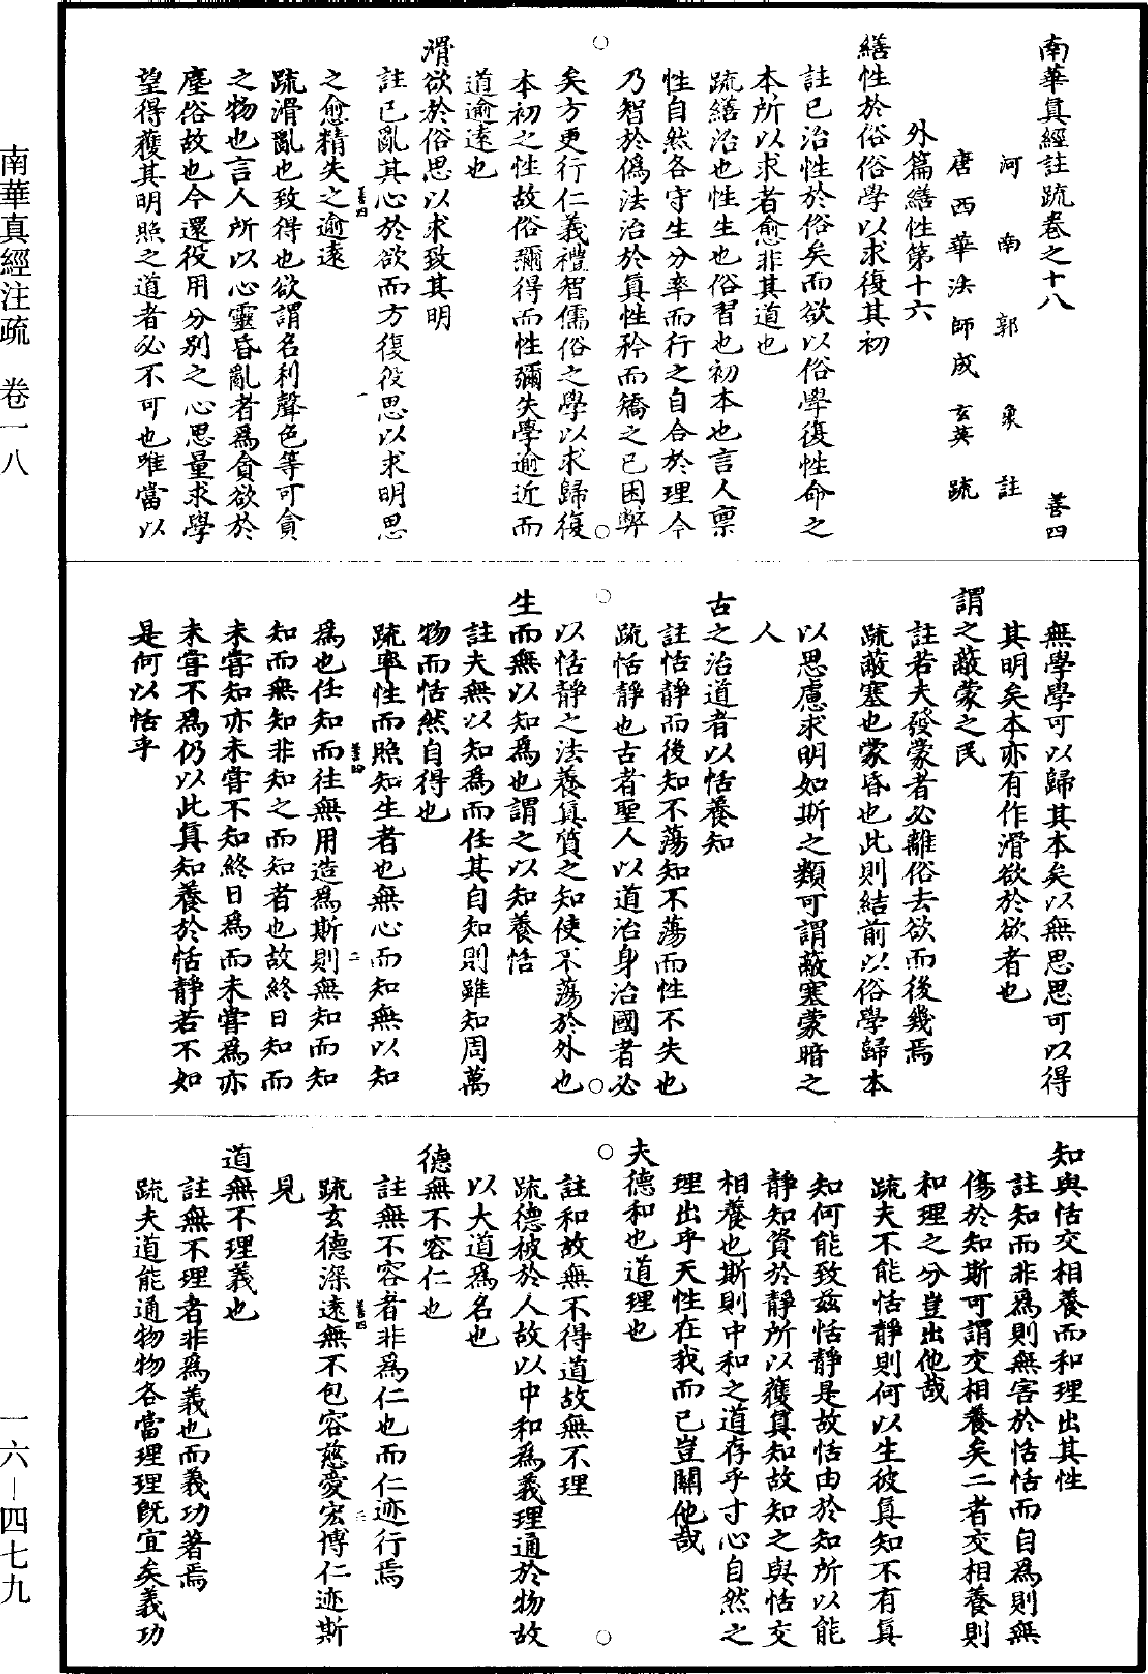 南華真經註疏卷之十八　善四
河南郭象註
唐西華法師成玄英疏
外篇繕性第十六
繕性於俗俗學以求復其初
註已治性於俗矣而欲以俗學復性命之
本所以求者愈非其道也
疏繕治也性生也俗習也初本也言人禀
性自然各守生分率而行之自合於理今
乃智於僞法治於真性矜而矯之已困弊
矣方更行仁義禮智儒俗之學以求歸復
本初之性故俗彌得而性彌失學逾近而
道逾遠也
滑欲於俗思以求致其明
註已亂其心於欲而方復役思以求明思
之愈精失之逾遠
善四　一
疏滑亂也致得也欲謂名利聲色等可貪
之物也言人所以心靈昏亂者爲貪欲於
塵俗故也今還役用分別之心思量求學
望得獲其明照之道者必不可也唯當以
無學學可以歸其本矣以無思思可以得
其明矣本亦有作滑欲於欲者也
謂之蔽蒙之民
註若夫發蒙者必離俗去欲而後幾焉
疏蔽塞也蒙昏也此則結前以俗學歸本
以思慮求明如斯之類可謂蔽塞蒙暗之
人
古之治道者以恬養知
註恬靜而後知不蕩知不蕩而性不失也
疏恬靜也古者聖人以道治身治國者必
以恬靜之法養真質之知使不蕩於外也
生而無以知爲也謂之以知養恬
註夫無以知爲而任其自知則雖知周萬
物而恬然自得也
疏率性而照知生者也無心而知無以知
善四　二
爲也任知而往無用造爲斯則無知而知
知而無知非知之而知者也故終日知而
未嘗知亦未嘗不知終日爲而未嘗爲亦
未嘗不爲仍以此真知養於恬靜若不如
是何以恬乎
知與恬交相養而和理出其性
註知而非爲則無害於恬恬而自爲則無
傷於知斯可謂交相養矣二者交相養則
和理之分豈出他哉
疏夫不能恬靜則何以生彼真知不有真
知何能致茲恬靜是故恬由於知所以能
靜知資於靜所以獲真知故知之與恬交
相養也斯則中和之道存乎寸心自然之
理出乎天性在我而已豈關他哉
夫德和也道理也
註和故無不得道故無不理
疏德被於人故以中和爲義理通於物故
以大道爲名也
德無不容仁也
註無不容者非爲仁也而仁迹行焉
善四　三
疏玄德深遠無不包容慈愛宏博仁迹斯
見
道無不理義也
註無不理者非爲義也而義功著焉
疏夫道能通物物各當理理既宜矣義功
南華真經注疏　卷一八
一六—四七九